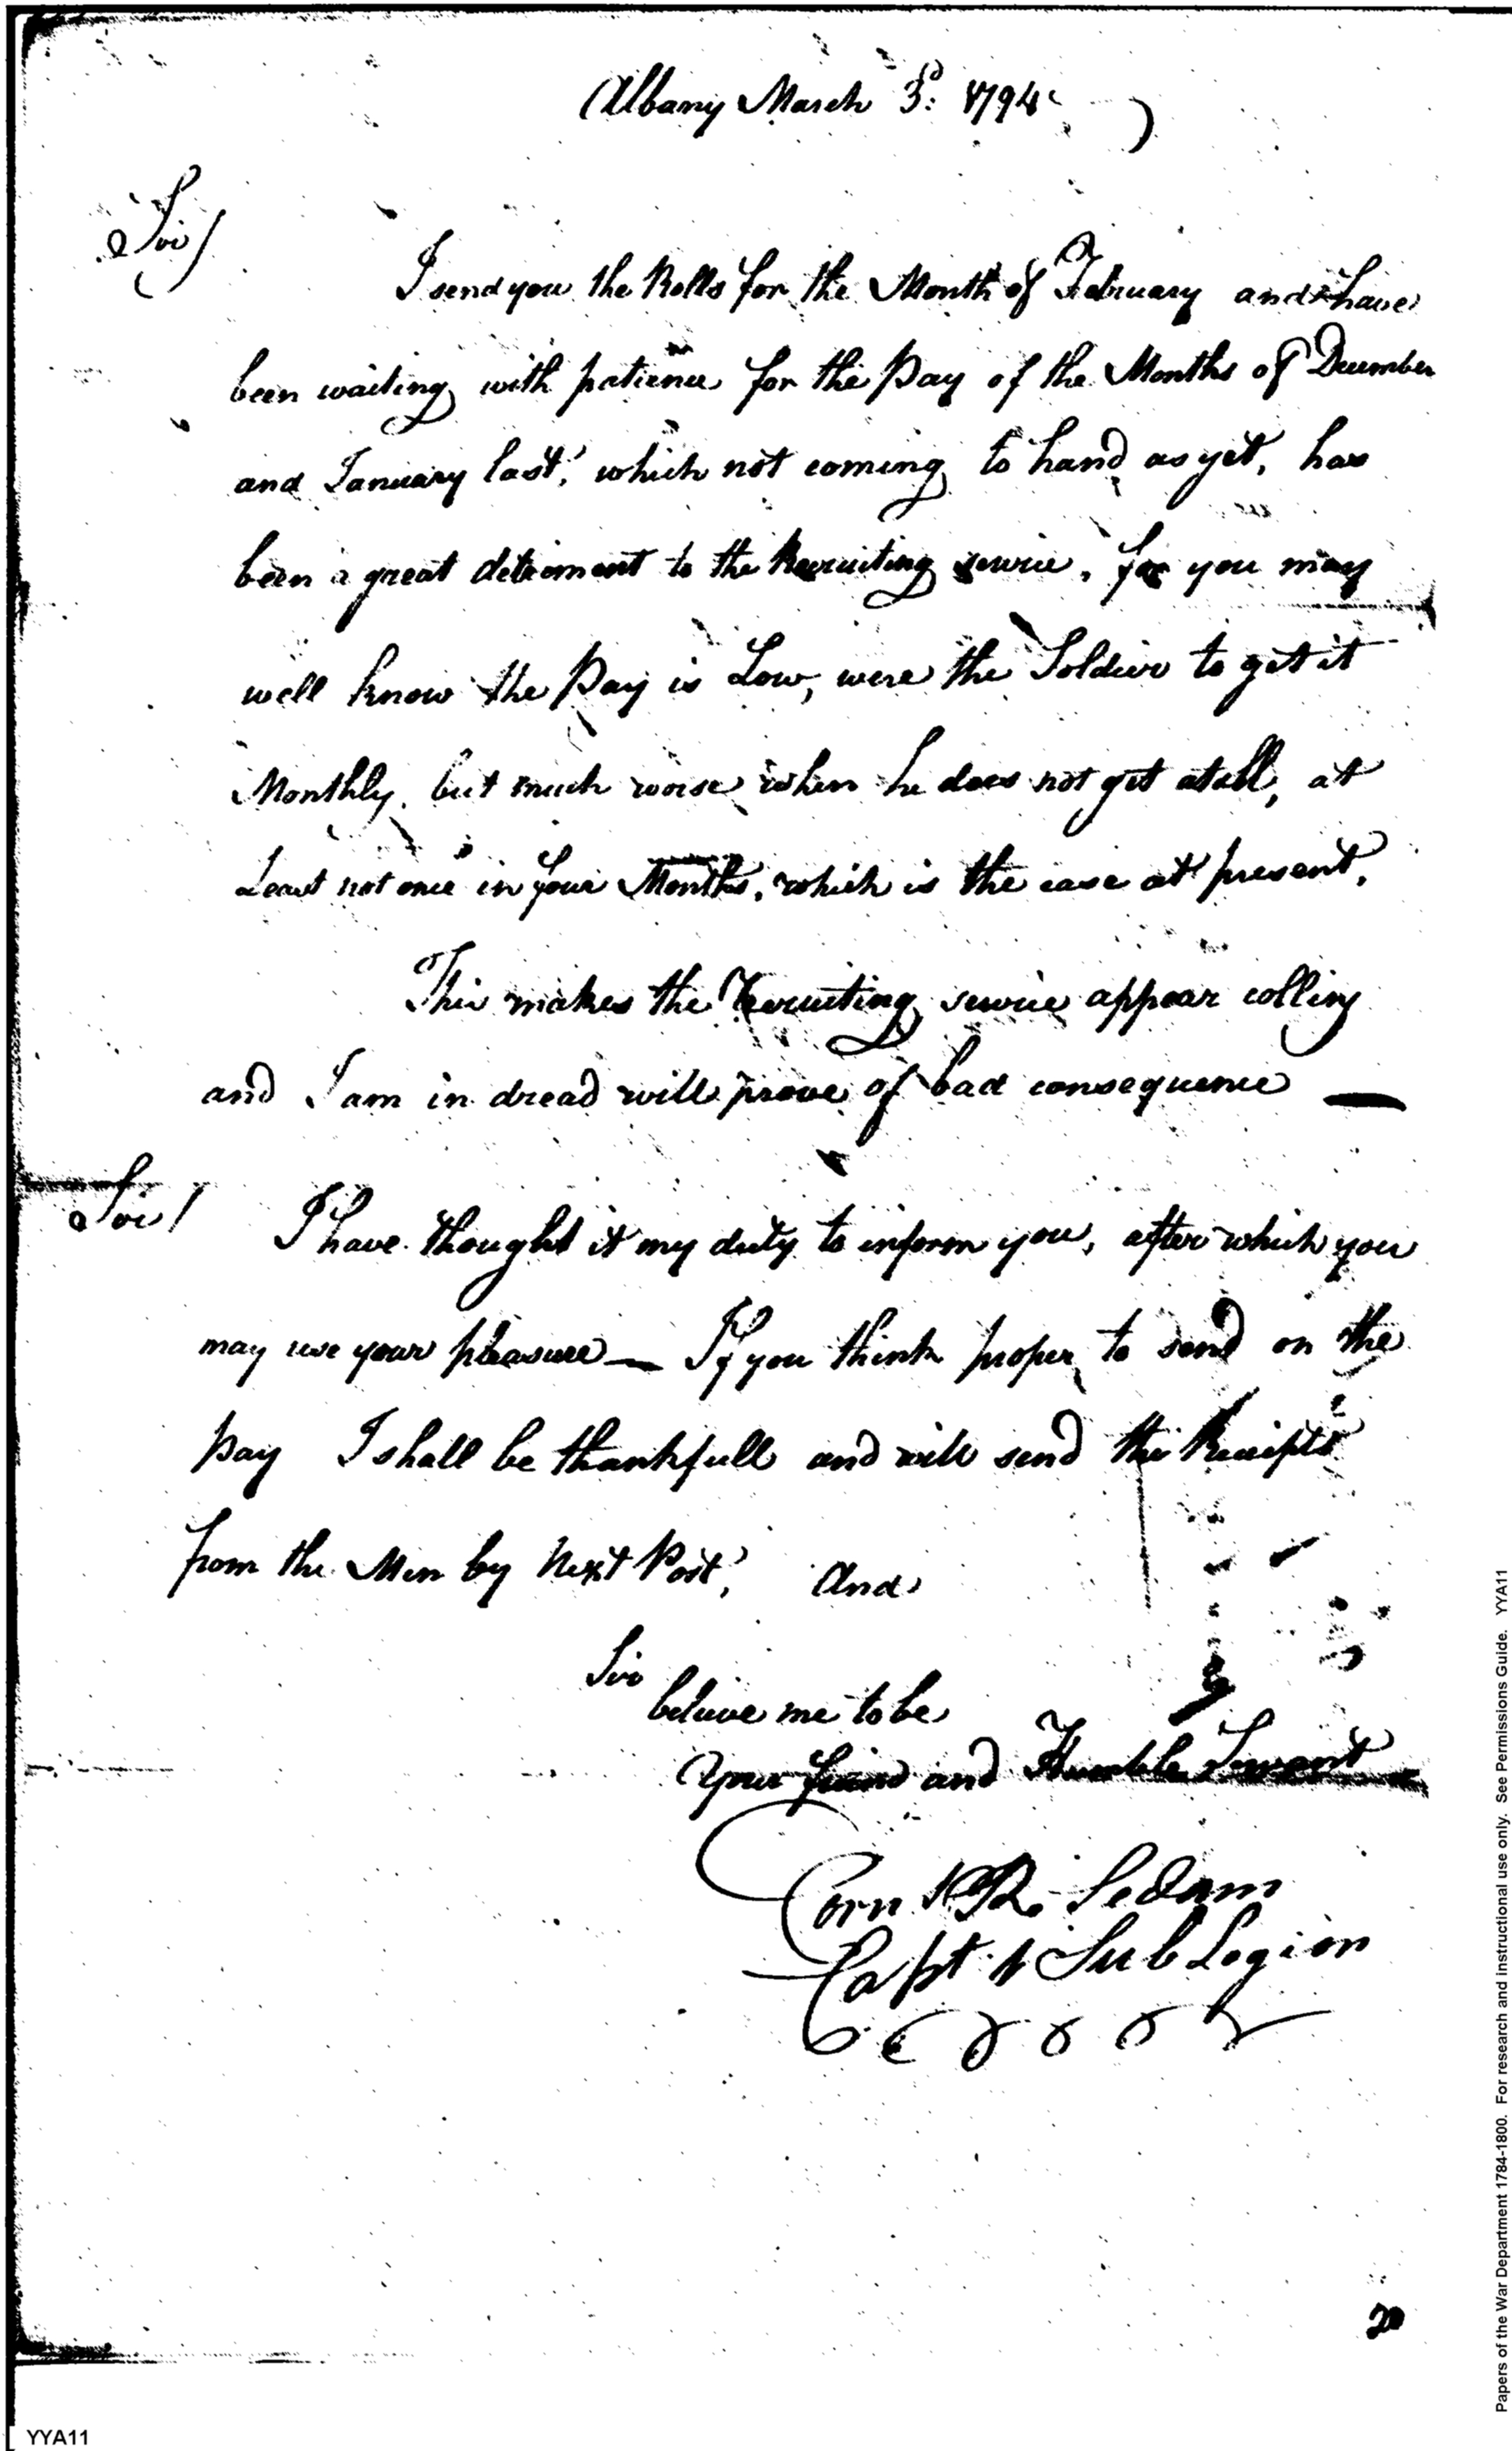 (Albany March 3d: 1794 )
Sir/
I send you the Rolls for the Month of February and have
been waiting with patience for the Pay of the Months of December
and January last, which not coming to hand as yet, has
been a great detriment to the Recruiting service, for you may
well know the Pay is Low, were the Soldier to get it
Monthly, but much worse when he does not get atall, at
Least not once in four Months, which is the case at present,
This makes the Recruiting service appear colling
and I am in dread will prove of bad consequence —
Sir/ I have thought it my duty to inform you, after which you
may use your pleasure — If you think proper to send on the
Pay I shall be thankfull and will send the Receipts
from the Men by Next Post, And
Sir
believe me to be
Your friend and Humble Servant
Corn R. Sedam
Capt 1 Sub Legion
20
YYA11
Papers of the War Department 1784-1800. For research and instructional use only. See Permissions Guide. YYA11